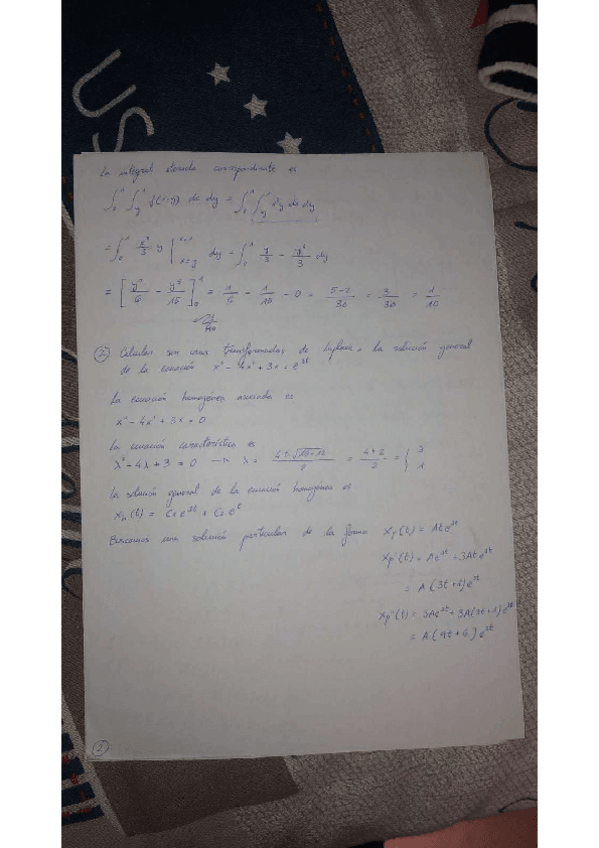 US
La integral iterada correspondiente es
∫₀¹ ∫_y¹ f(x,y) dx dy = ∫₀¹ ∫_y¹ x²y dx dy
= ∫₀¹ x³/3 y |_{x=y}^{x=1} dy = ∫₀¹ y/3 - y⁴/3 dy
= [ y²/6 - y⁵/15 ]₀¹ = 1/6 - 1/15 - 0 = 5-2/30 = 3/30 = 1/10
② Calcular transformadas de Laplace, la solución general
de la ecuación x'' - 4x' + 3x = e^{3t}
La ecuación homogénea asociada es
x'' - 4x' + 3x = 0
La ecuación característica es
λ² - 4λ + 3 = 0 → λ = 4±√16-12 / 2 = 4±2 / 2 = { 3 1
La solución general de la ecuación homogénea es
x_h(t) = C₁e^{3t} + C₂e^t
Buscamos una solución particular de la forma x_p(t) = Ate^{3t}
x_p'(t) = Ae^{3t} + 3Ate^{3t}
= A(3t+1)e^{3t}
x_p''(t) = 3Ae^{3t} + 3A(3t+1)e^{3t}
= A(9t+6)e^{3t}
②